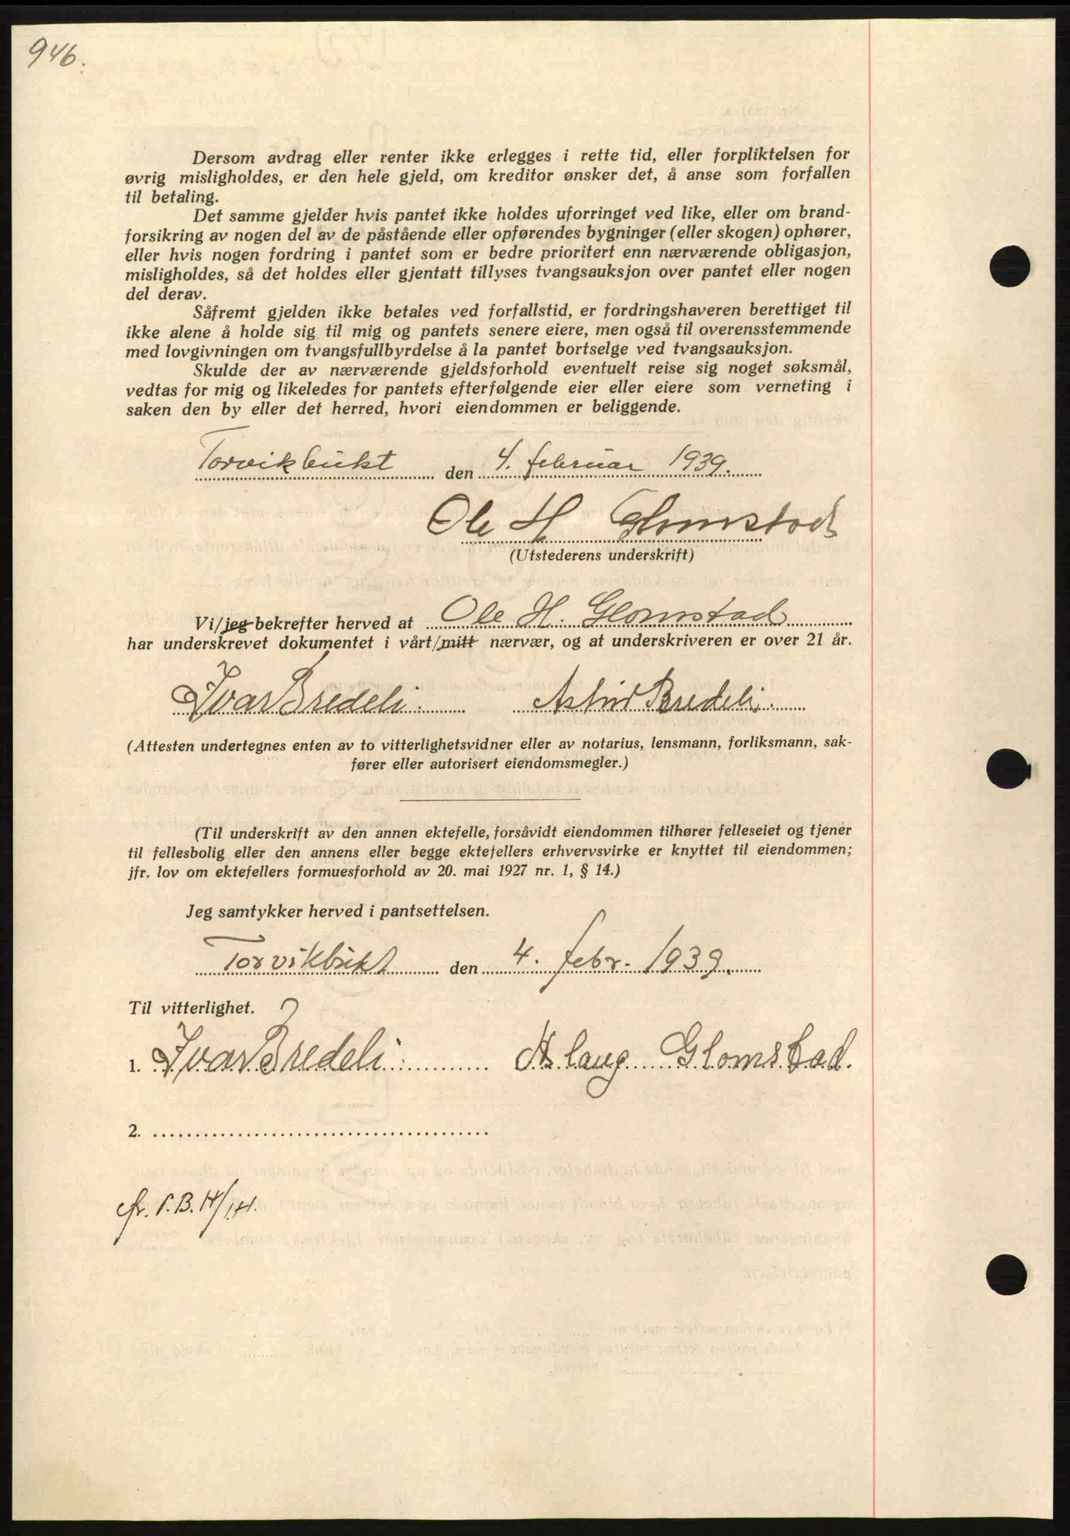 946.
Dersom avdrag eller renter ikke erlegges i rette tid, eller forpliktelsen for
øvrig misligholdes, er den hele gjeld, om kreditor ønsker det, å anse som forfallen
til betaling.
Det samme gjelder hvis pantet ikke holdes uforringet ved like, eller om brand-
forsikring av nogen del av de påstående eller opførendes bygninger (eller skogen) ophører,
eller hvis nogen fordring i pantet som er bedre prioritert enn nærværende obligasjon,
misligholdes, så det holdes eller gjentatt tillyses tvangsauksjon over pantet eller nogen
del derav.
Såfremt gjelden ikke betales ved forfallstid, er fordringshaveren berettiget til
ikke alene å holde sig til mig og pantets senere eiere, men også til overensstemmende
med lovgivningen om tvangsfullbyrdelse å la pantet bortselge ved tvangsauksjon.
Skulde der av nærværende gjeldsforhold eventuelt reise sig noget søksmål,
vedtas for mig og likeledes for pantets efterfølgende eier eller eiere som verneting i
saken den by eller det herred, hvori eiendommen er beliggende.
Torvikbukt den 4. februar 1939.
Ole H Glomstad
(Utstederens underskrift)
Vi/jeg bekrefter herved at Ole H. Glomstad
har underskrevet dokumentet i vårt/mitt nærvær, og at underskriveren er over 21 år.
Ivar Bredeli. Astrid Bredeli.
(Attesten undertegnes enten av to vitterlighetsvidner eller av notarius, lensmann, forliksmann, sak-
fører eller autorisert eiendomsmegler.)
(Til underskrift av den annen ektefelle, forsåvidt eiendommen tilhører felleseiet og tjener
til fellesbolig eller den annens eller begge ektefellers erhvervsvirke er knyttet til eiendommen;
jfr. lov om ektefellers formuesforhold av 20. mai 1927 nr. 1, § 14.)
Jeg samtykker herved i pantsettelsen.
Torvikbukt den 4. febr. 1939.
Til vitterlighet.
1. Ivar Bredeli. Aslaug Glomstad.
2.